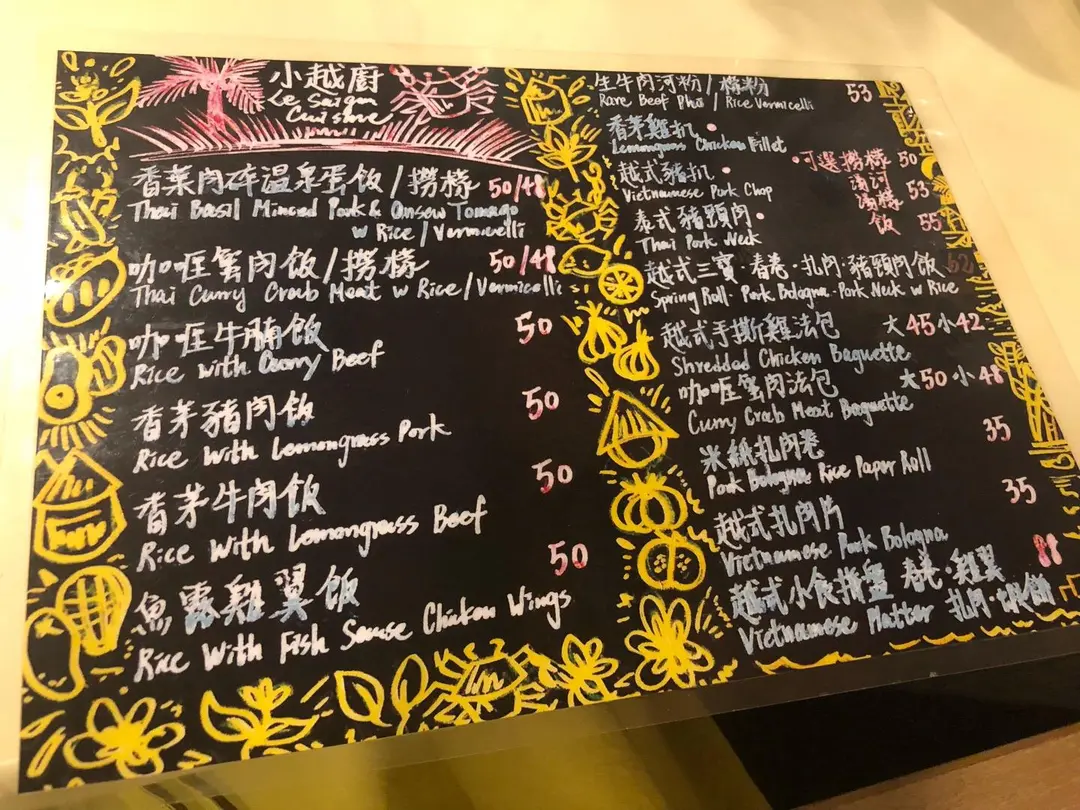 小越廚
Le Saigon
Cuisine
香葉肉碎溫泉蛋飯/撈檬 50/48
Thai Basil Minced Pork & Onsew Tomago
w Rice/Vermicelli
咖喱蟹肉飯/撈檬 50/48
Thai Curry Crab Meat w Rice/Vermicelli
咖喱牛腩飯 50
Rice with Curry Beef
香茅豬肉飯 50
Rice With Lemongrass Pork
香茅牛肉飯 50
Rice With Lemongrass Beef
魚露雞翼飯 50
Rice With Fish Sauce Chicken Wings
生牛肉河粉/檬粉 53
Rare Beef Pho / Rice Vermicelli
香茅雞扒•
Lemongrass Chicken Fillet
越式豬扒•
Vietnamese Pork Chop
泰式豬頸肉•
Thai Pork Neck
•可選撈檬 50
湯河
湯檬 53
飯 55
越式三寶·春卷·扎肉·豬頸肉飯 62
Spring Roll · Pork Bologna · Pork Neck w Rice
越式手撕雞法包 大45小42
Shredded Chicken Baguette
咖喱蟹肉法包 大50小48
Curry Crab Meat Baguette
米紙扎肉卷 35
Pork Bologna Rice Paper Roll
越式扎肉片 35
Vietnamese Pork Bologna
越式小食拼盤 春卷·雞翼 88
Vietnamese Platter 扎肉·蝦餅